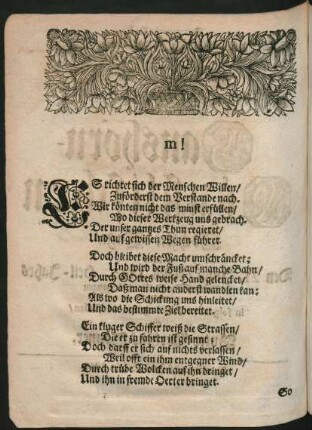 m!
ES richtet sich der Menschen Willen/
Zuförderst dem Verstande nach.
Wir könten nicht das minst erfüllen/
Wo dieser Werckzeug uns gebrach.
Der unser gantzes Thun regieret/
Und auf gewissen Wegen führet.
Doch bleibet diese Macht umschräncket;
Und wird der Fuß auf manche Bahn/
Durch GOttes weise Hand gelencket/
Daß man nicht anderst wandlen kan;
Als wo die Schickung uns hinleitet/
Und das bestimmte Ziel bereitet.
Ein kluger Schiffer weiß die Strassen/
Die er zu fahren ist gesinnt;
Doch darff er sich auf nichts verlassen/
Weil offt ein ihm entgegner Wind/
Durch trübe Wolcken auf ihn dringet/
Und ihn in fremde Oerter bringet.
So